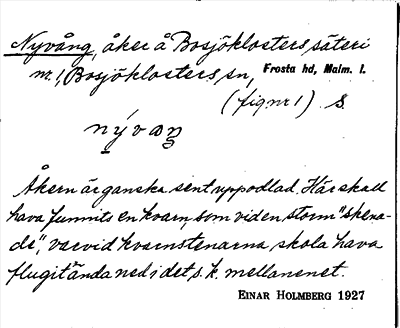 Nyvång, åker å Bosjöklosters säteri
m. 1, Bosjöklosters sn, Frosta hd, Malm. l.
(fig nr 1) S.
nývaŋ
Åkern är ganska sent uppodlad. Här skall
hava funnits en kvarn, som vid en storm "skena-
de", varvid kvarnstenarna skola hava
flugit ända ned i det s.k. mellanenet.
EINAR HOLMBERG 1927